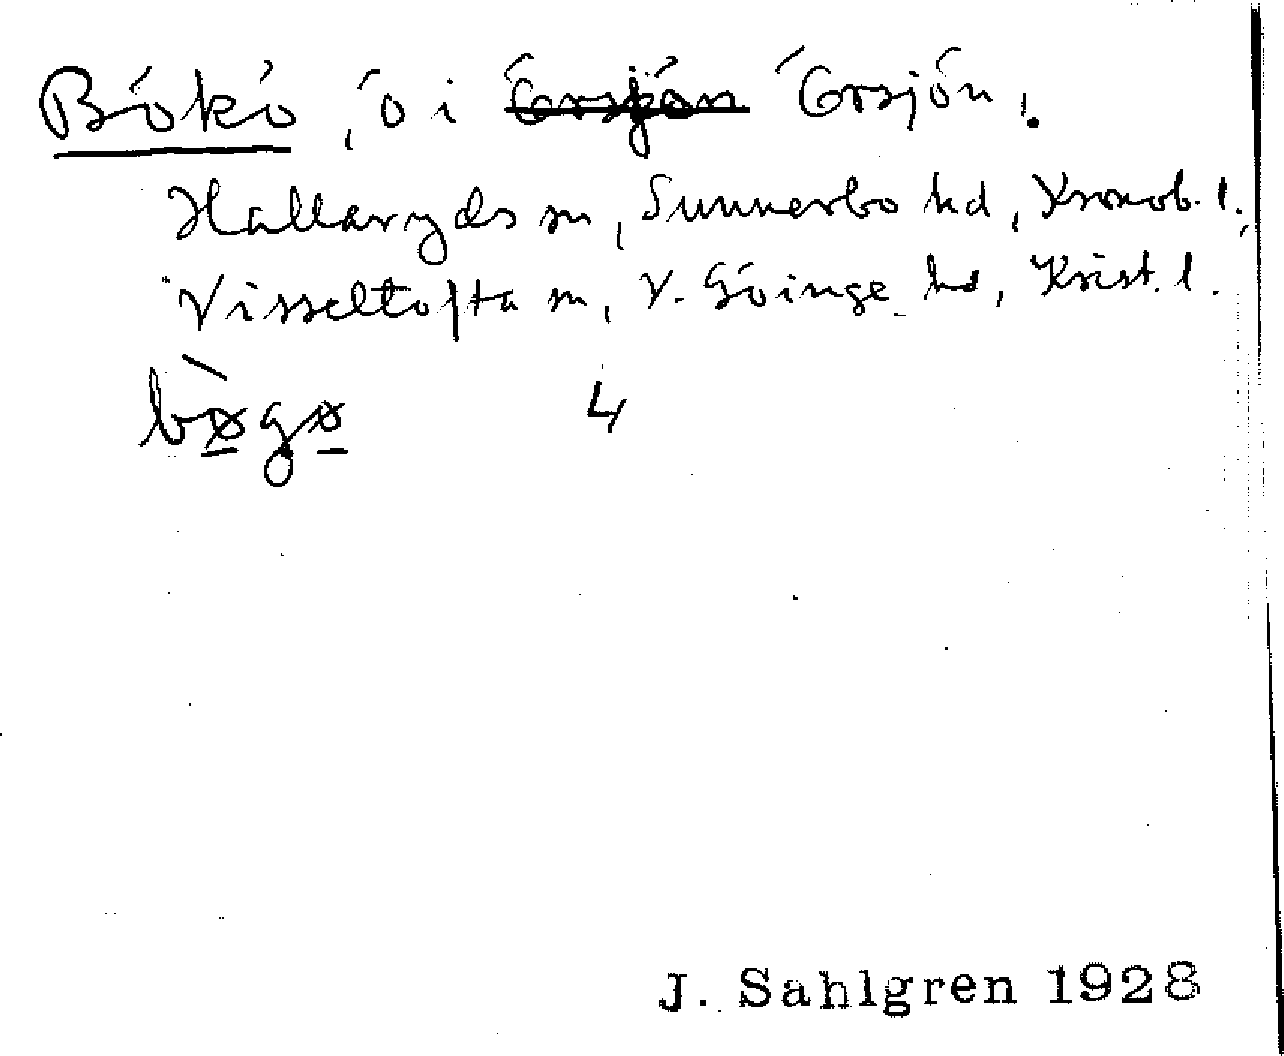 Bökö, ö i Örsjön Örsjön.
Hallaryds sn, Sunnerbo hd, Kronob. l.;
Visseltofta sn, V. Göinge hd, Krist. l.
bø̀gø 4
J. Sahlgren 1928